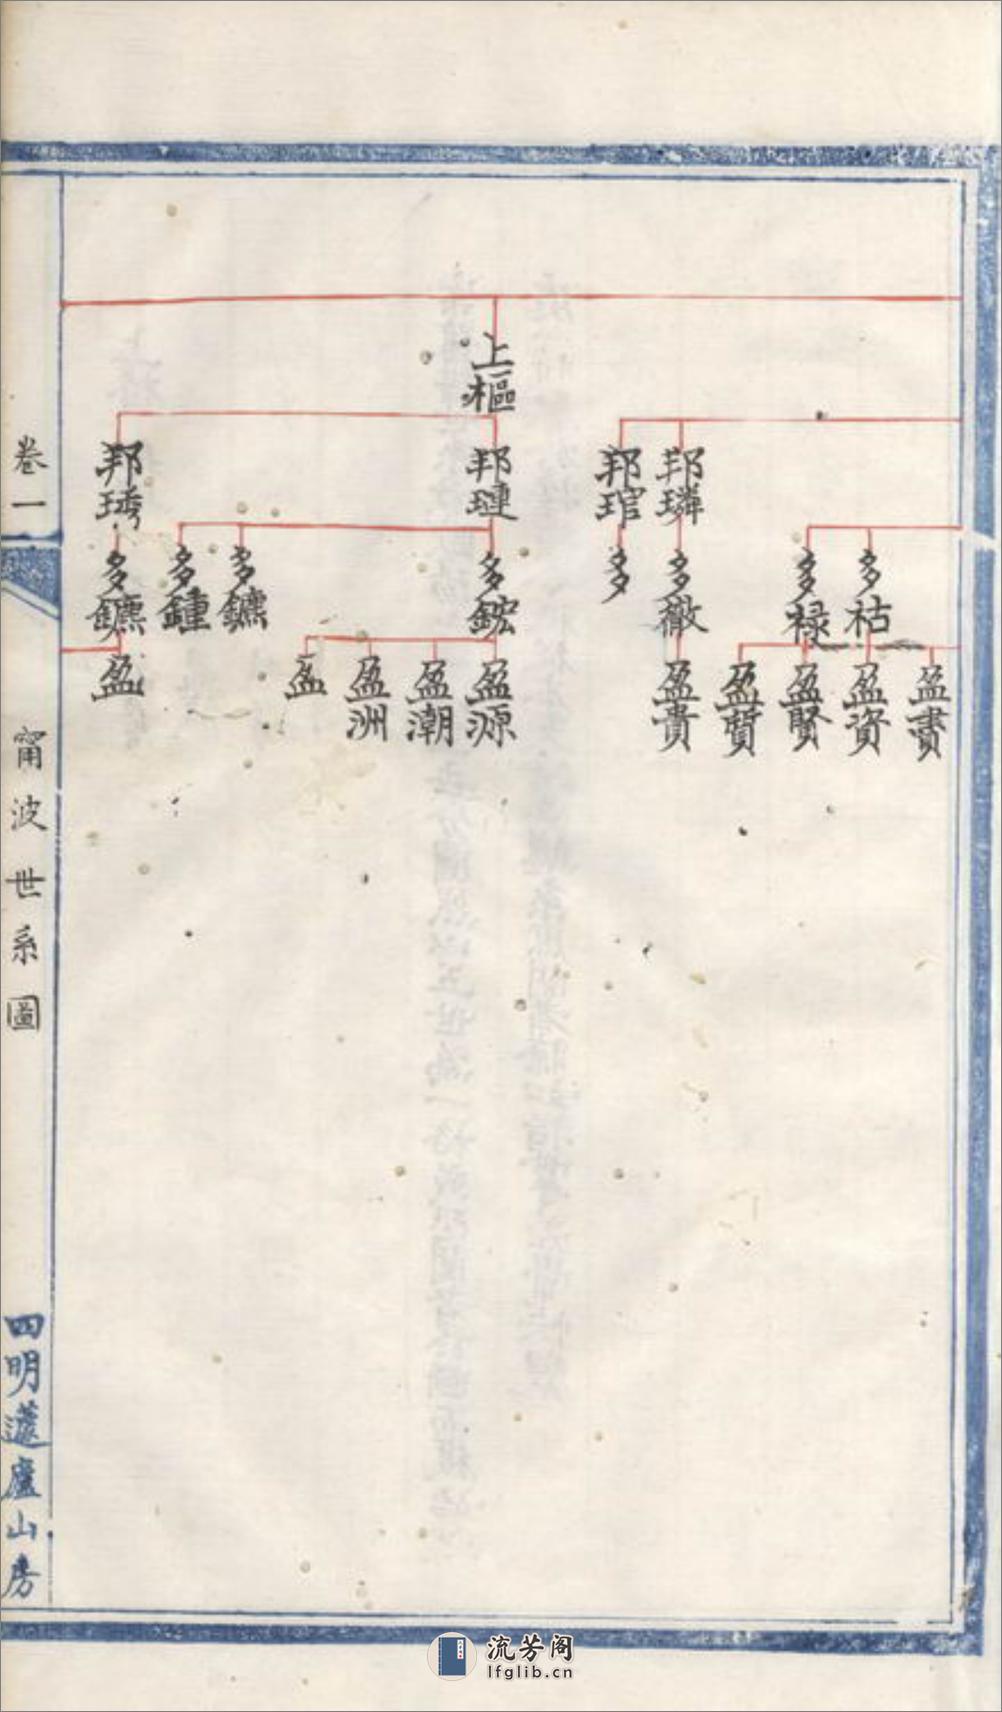 上樞
邦璘
邦琯
邦璉
邦琇
多祜
多祿
多徹
多
多鋐
多鑣
多鍾
多鑣
盈賮
盈資
盈賢
盈質
盈貴
盈源
盈潮
盈洲
盈
盈
卷一
甯波世系圖
四明蘧廬山房
流芳阁
lfglib.cn